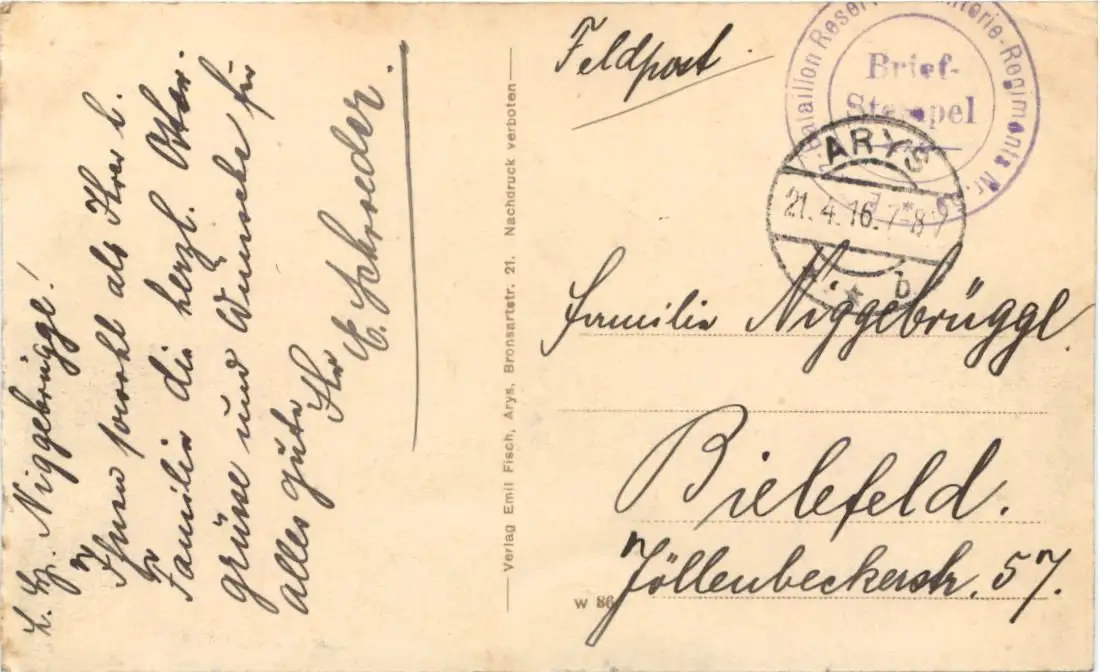 L. Hr. Niggebrügge!
Ihnen sowohl als Ihrer l.
Familie die herzl. Oster-
grüsse und Wünsche für
alles gute
Ihr
E. Schroeder.
— Verlag Emil Fisch, Arys, Bronsartstr. 21. Nachdruck verboten —
W 86
Feldpost
Bataillon Reserve-Infanterie-Regiments Nr.
Brief-
Stempel
ARYS
21.4.16. 7-8
* b
Familie Niggebrügge.
Bielefeld.
Jöllenbeckerstr. 57.